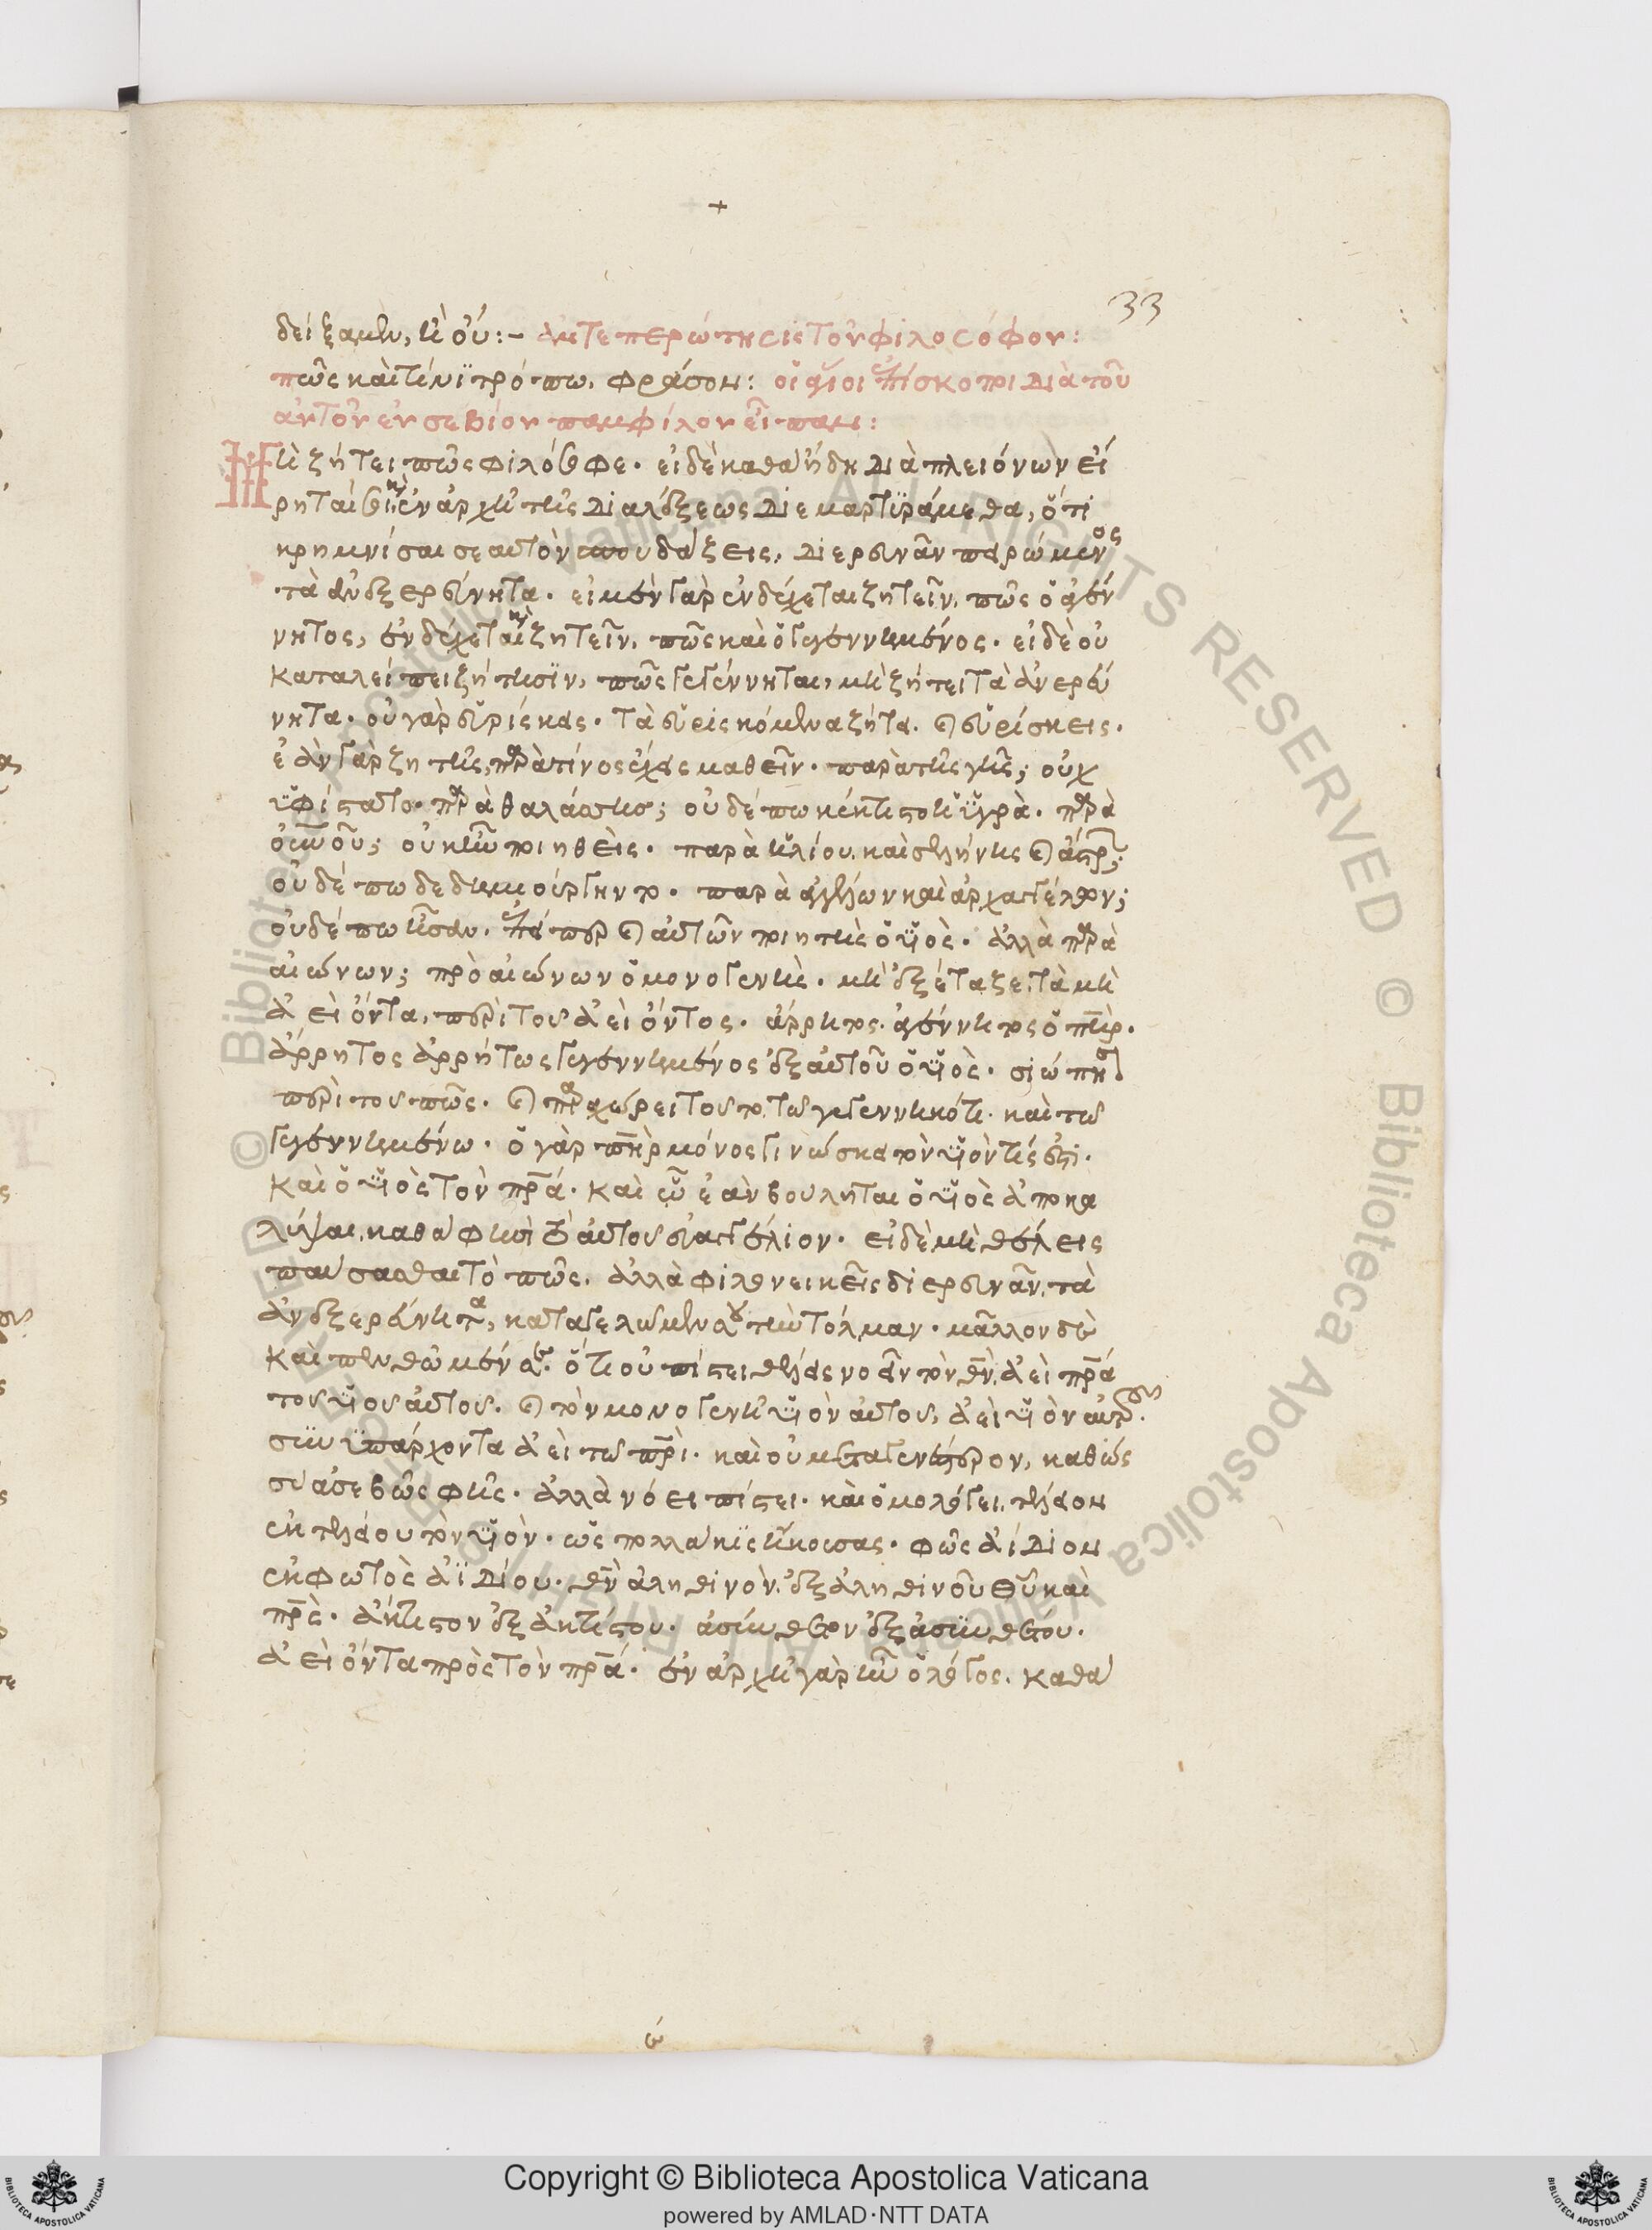 33
δείξαμεν, ἢ οὔ:– ἀντεπερώτησις τοῦ φιλοσόφου:
πῶς καὶ τίνι τρόπω, φράσον: οἱ ἅγιοι ἐπίσκοποι διὰ τοῦ
αὐτοῦ εὐσεβίου παμφίλου εἶπαν:
Μὴ ζήτει πῶς φιλόσοφε. εἰ δὲ καθὰ ἤδη διὰ πλειόνων εἴ
ρηταί σοι καὶ ἐν ἀρχῆ τῆς διαλέξεως διεμαρτυράμεθα, ὅτι
κρημνίσαι σεαυτὸν σπουδάζεις, διερευνᾶν πειρώμενος
τὰ ἀνεξερεύνητα. εἰ μὲν γὰρ ἐνδέχεται ζητεῖν, πῶς ὁ ἀγέν
νητος, ἐνδέχεται καὶ ζητεῖν, πῶς καὶ ὁ γεγεννημένος. εἰ δὲ οὐ
καταλείπει ζήτησιν, πῶς γεγέννηται, μὴ ζήτει τὰ ἀνερεύ
νητα. οὐ γὰρ εὑρίσκεις. τὰ εὑρισκόμενα ζήτει. καὶ εὑρίσκεις.
ἐὰν γὰρ ζητῆς, παρὰ τίνος ἔχεις μαθεῖν. παρὰ τῆς γῆς; οὐχ
ὑφίστατο. παρὰ θαλάσσης; οὐδέπω κέκτιστο ἡ ὑγρὰ. παρὰ
οὐνοῦ; οὐκ ἦν ποιηθεὶς. παρὰ ἡλίου καὶ σελήνης καὶ ἄστρων;
οὐδέπω δεδημιούργηντο. παρὰ ἀγγέλων καὶ ἀρχαγγέλων;
οὐδέπω ἦσαν. ἐπείπερ καὶ αὐτῶν ποιητὴς ὁ υἱὸς. ἀλλὰ παρὰ
αἰώνων; πρὸ αἰώνων ὁ μονογενὴς. μὴ ἐξέταζε τὰ μὴ
ἀεὶ ὄντα, περὶ τοῦ ἀεὶ ὄντος. ἄρρητος ἀγέννητος ὁ πηρ.
ἄρρητος ἀρρήτως γεγεννημένος ἐξ αὐτοῦ ὁ υἱὸς. σιώπησον
περὶ τοῦ πῶς. καὶ παραχώρει τοῦτο τῶ γεγεννηκότι καὶ τῶ
γεγεννημένω. ὁ γὰρ πηρ μόνος γινώσκει τὸν υἱὸν τίς ἐστι.
καὶ ὁ υἱὸς τὸν πρα. καὶ ὧ ἐὰν βούληται ὁ υἱὸς ἀποκα
λύψαι, καθά φησι τὸ αὐτοῦ εὐαγγέλιον. εἰ δὲ μὴ θέλεις
παύσασθαι τὸ πῶς. ἀλλὰ φιλονεικεῖς διερευνᾶν τὰ
ἀνεξερεύνητα, καταγελῶμέν σου τὴν τόλμαν. μᾶλλον δὲ
καὶ πενθῶμέν σε. ὅτι οὐ πίστει θέλεις νοεῖν τὸν θν, ἀεὶ πρα
τοῦ υἱοῦ αὐτοῦ. καὶ τὸν μονογενῆ υἱὸν αὐτοῦ, ἀεὶ υἱὸν αὐτοῦ.
συνυπάρχοντα ἀεὶ τῶ πρι. καὶ οὐ μεταγενέστερον, καθώς
σὺ ἀσεβῶς φῆς. ἀλλὰ νόει πίστει. καὶ ὁμολόγει, τέλειον
ἐκ τελείου τὸν υἱὸν. ὡς πολλάκις ἤκουσας. φῶς ἀίδιον
ἐκ φωτὸς ἀϊδίου. θν ἀληθινὸν ἐξ ἀληθινοῦ θῦ καὶ
πρς. ἄκτιστον ἐξ ἀκτίστου. ἀσύνθετον ἐξ ἀσυνθέτου.
ἀεὶ ὄντα πρὸς τὸν πρα. ἐν ἀρχῆ γὰρ ἦν ὁ λόγος. καθὰ
Copyright © Biblioteca Apostolica Vaticana
powered by AMLAD·NTT DATA